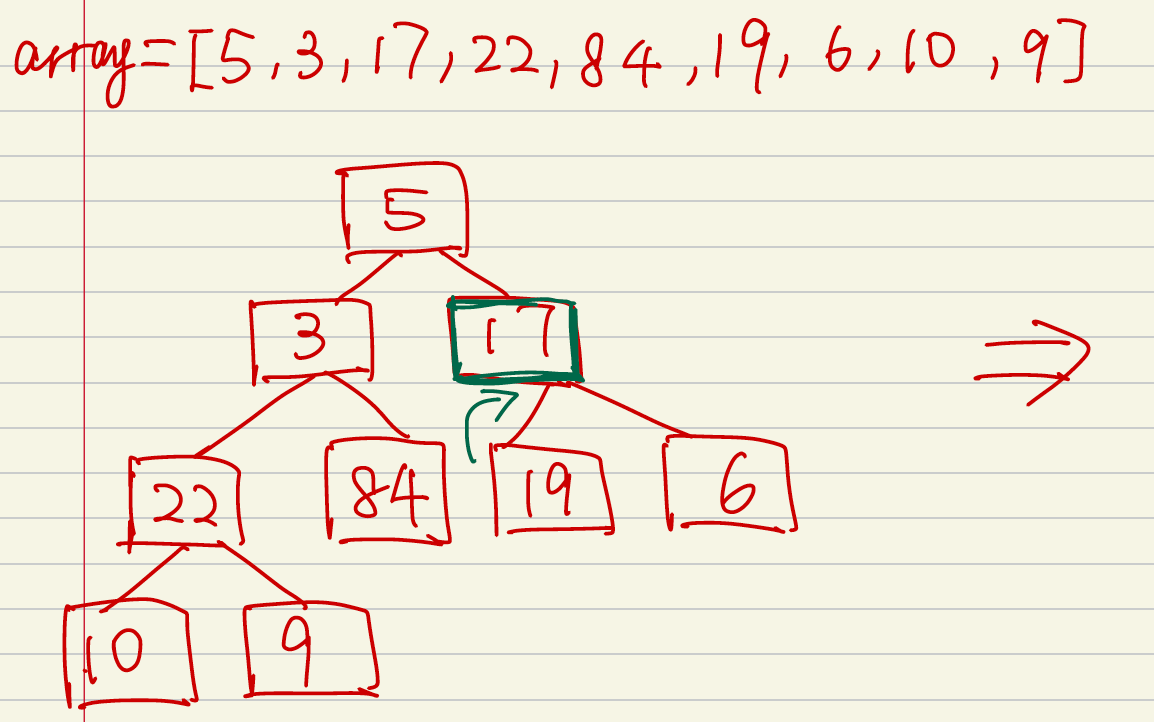 array=[5,3,17,22,84,19,6,10,9]
5
3 17
22 84 19 6
10 9